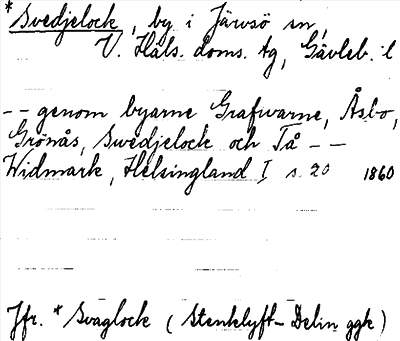 * Svedjelock, by i Järvsö sn,
V. Häls. doms. tg, Gävleb. l
-- genom byarne Grafwarne, Åsbo,
Grönås, Swedjelock och Tå --
Widmark, Helsingland I s. 20 1860
Jfr. * Svaglock (Stenklyft- Delin ggk)